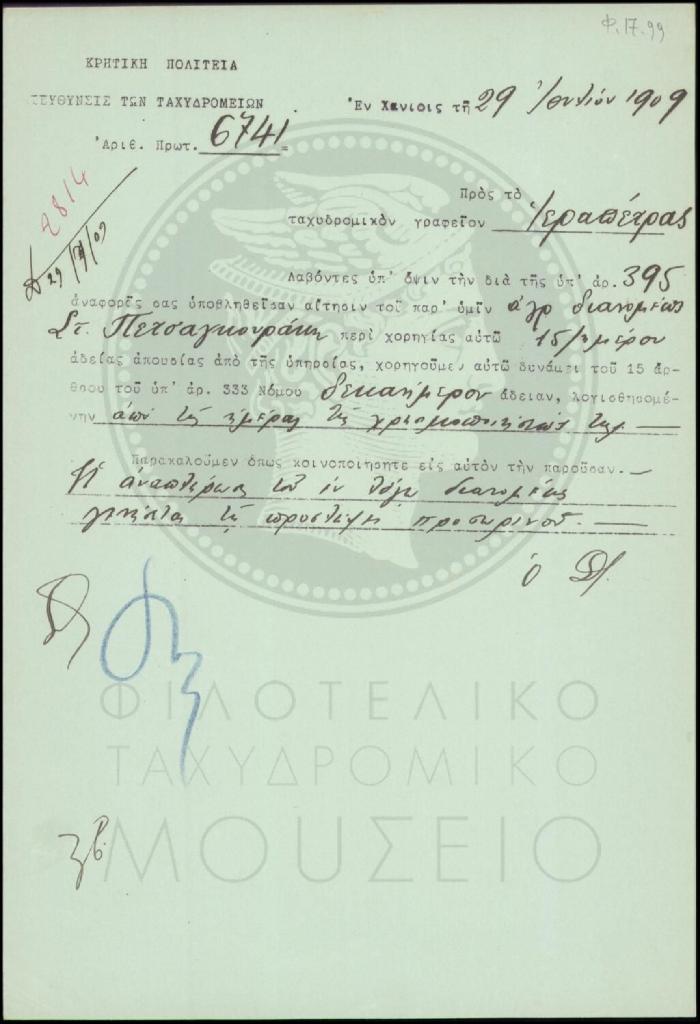 Φ. 17.99
ΚΡΗΤΙΚΗ ΠΟΛΙΤΕΙΑ
ΙΕΥΘΥΝΣΙΣ ΤΩΝ ΤΑΧΥΔΡΟΜΕΙΩΝ
Ἐν Χανίοις τῇ 29 Ἰουλίου 1909
Ἀριθ. Πρωτ. 6741
2814
29/7/09
Πρὸς τὸ
ταχυδρομικὸν γραφεῖον Ἱεραπέτρας
Λαβόντες ὑπ' ὄψιν τὴν διὰ τῆς ὑπ' ἀρ. 395
ἀναφορᾶς σας ὑποβληθεῖσαν αἴτησιν τοῦ παρ' ὑμῖν ἀγρ διανομέως
Στ. Πετσαγκουράκη περὶ χορηγίας αὐτῷ 15/ημέρου
ἀδείας ἀπουσίας ἀπὸ τῆς ὑπηρσίας, χορηγοῦμεν αὐτῷ δυνάμει τοῦ 15 ἄρ-
θρου τοῦ ὑπ' ἀρ. 333 Νόμου δεκαήμερον ἄδειαν, λογισθησομέ-
νην ἀπὸ τῆς ἡμέρας τῆς χρησιμοποιήσεώς της.
Παρακαλοῦμεν ὅπως κοινοποιήσητε εἰς αὐτὸν τὴν παροῦσαν.—
Ἡ ἀναπλήρωσις τοῦ ἐν λόγῳ διανομέως
γενήσεται τῇ προσλήψει προσωρινοῦ.
ὁ Δ/.
ΦΙΛΟΤΕΛΙΚΟ
ΤΑΧΥΔΡΟΜΙΚΟ
ΜΟΥΣΕΙΟ